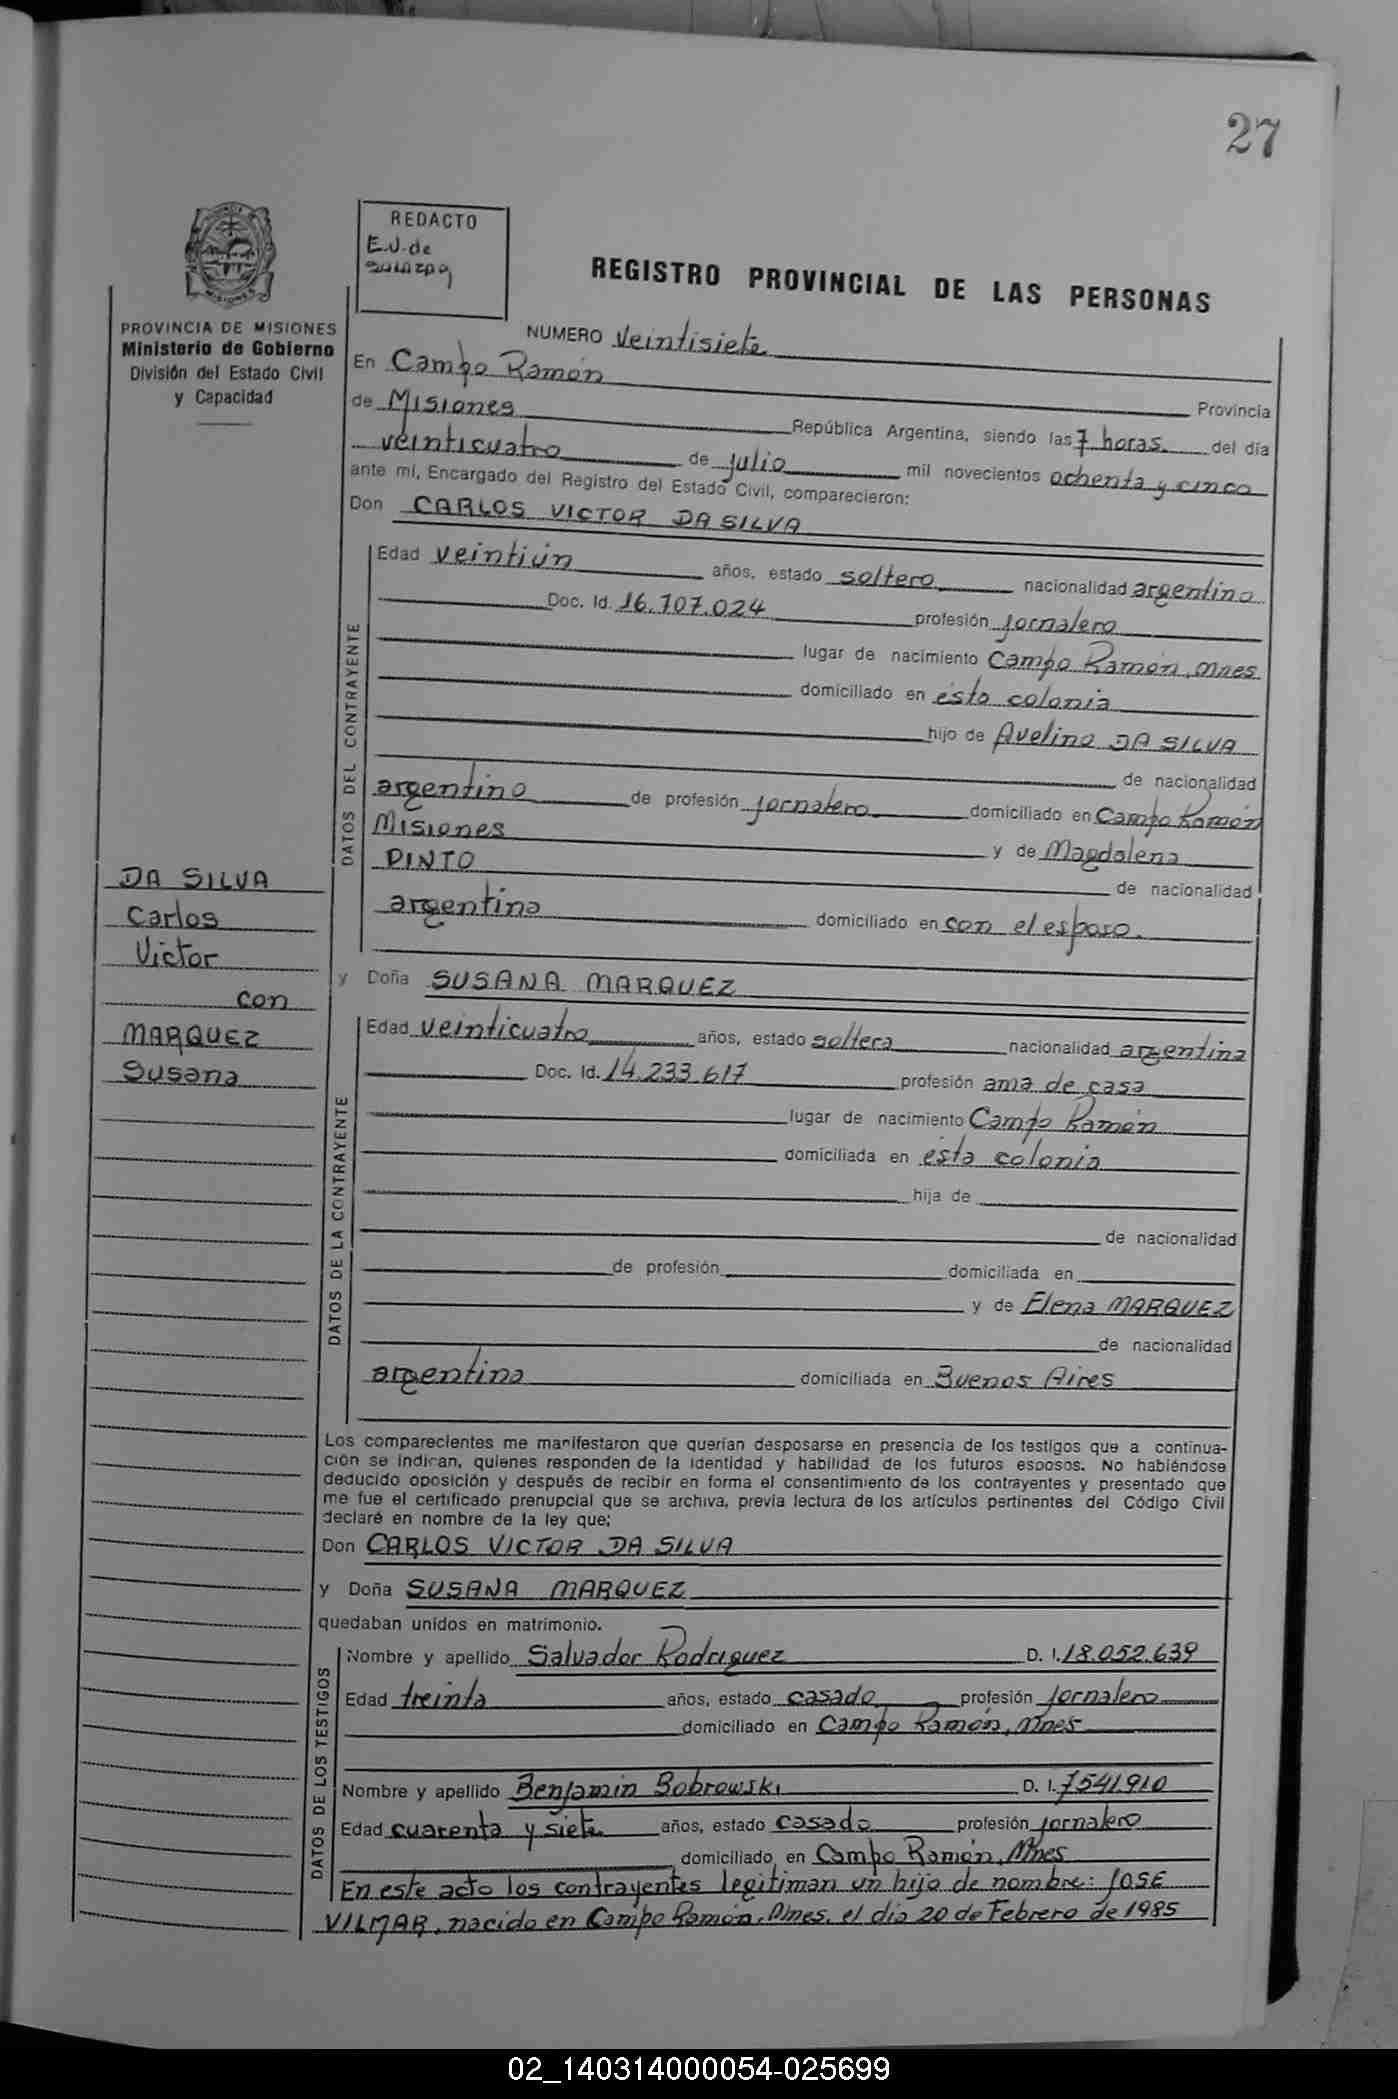 27
REDACTO
E.J. de
REGISTRO PROVINCIAL DE LAS PERSONAS
PROVINCIA DE MISIONES
Ministerio de Gobierno
División del Estado Civil
y Capacidad
NUMERO Veintisiete
En Campo Ramón
Provincia
de Misiones República Argentina, siendo las 7 horas. del día
veinticuatro de julio mil novecientos ochenta y cinco
ante mí, Encargado del Registro del Estado Civil, comparecieron:
Don CARLOS VICTOR DA SILVA
DATOS DEL CONTRAYENTE
Edad veintiún años, estado soltero nacionalidad argentina
Doc. Id. 16.707.024 profesión jornalero
lugar de nacimiento Campo Ramón, Mnes.
domiciliado en ésta colonia
hijo de Avelino DA SILVA
de nacionalidad
argentino de profesión jornalero domiciliado en Campo Ramón
Misiones y de Magdalena
PINTO de nacionalidad
argentina domiciliado en con el esposo.
DA SILVA
Carlos
Victor
con
MARQUEZ
Susana
y Doña SUSANA MARQUEZ
DATOS DE LA CONTRAYENTE
Edad veinticuatro años, estado soltera nacionalidad argentina
Doc. Id. 14.233.617 profesión ama de casa
lugar de nacimiento Campo Ramón
domiciliada en ésta colonia
hija de
de nacionalidad
de profesión domiciliada en
y de Elena MARQUEZ
de nacionalidad
argentina domiciliada en Buenos Aires
Los comparecientes me manifestaron que querían desposarse en presencia de los testigos que a continua-
ción se indican, quienes responden de la identidad y habilidad de los futuros esposos. No habiéndose
deducido oposición y después de recibir en forma el consentimiento de los contrayentes y presentado que
me fue el certificado prenupcial que se archiva, previa lectura de los artículos pertinentes del Código Civil
declaré en nombre de la ley que:
Don CARLOS VICTOR DA SILVA
y Doña SUSANA MARQUEZ
quedaban unidos en matrimonio.
DATOS DE LOS TESTIGOS
Nombre y apellido Salvador Rodriguez D. I. 18.052.639
Edad treinta años, estado casado profesión jornalero
domiciliado en Campo Ramón, Mnes
Nombre y apellido Benjamin Bobrowski D. I. 7541.910
Edad cuarenta y siete años, estado casado profesión jornalero
domiciliado en Campo Ramón, Mnes
En este acto los contrayentes legitiman un hijo de nombre: JOSE
VILMAR, nacido en Campo Ramón, Mnes. el día 20 de Febrero de 1985
02_140314000054-025699